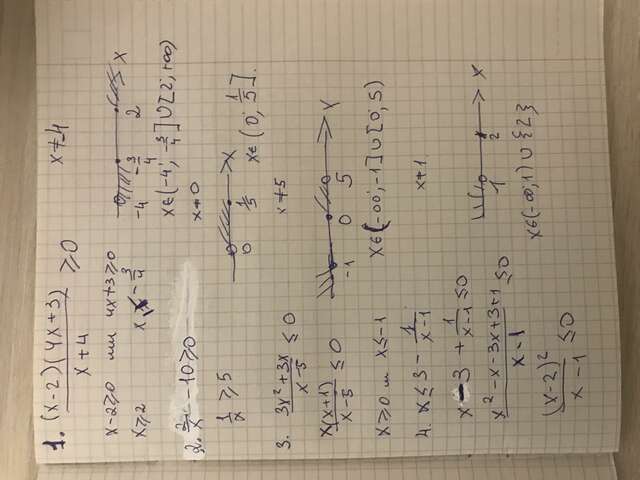 1. (x-2)(4x+3)/(x+4) ≥ 0   x≠-4
x-2≥0 или 4x+3≥0
x≥2   x - 3/4
-4   -3/4   2   x
x∈(-4; -3/4]∪[2; +∞)
2. 2/x - 10≥0   x≠0
1/x ≥ 5
0   1/5   x
x∈(0; 1/5].
3. (3x²+3x)/(x-5) ≤ 0   x≠5
x(x+1)/(x-5) ≤ 0
-1   0   5   x
x≥0 и x≤-1
x∈(-∞; -1]∪[0; 5)
4. x≤3 - 1/(x-1)   x≠1
x-3 + 1/(x-1) ≤0
(x²-x-3x+3+1)/(x-1) ≤0
1   2   x
(x-2)²/(x-1) ≤0
x∈(-∞; 1)∪{2}